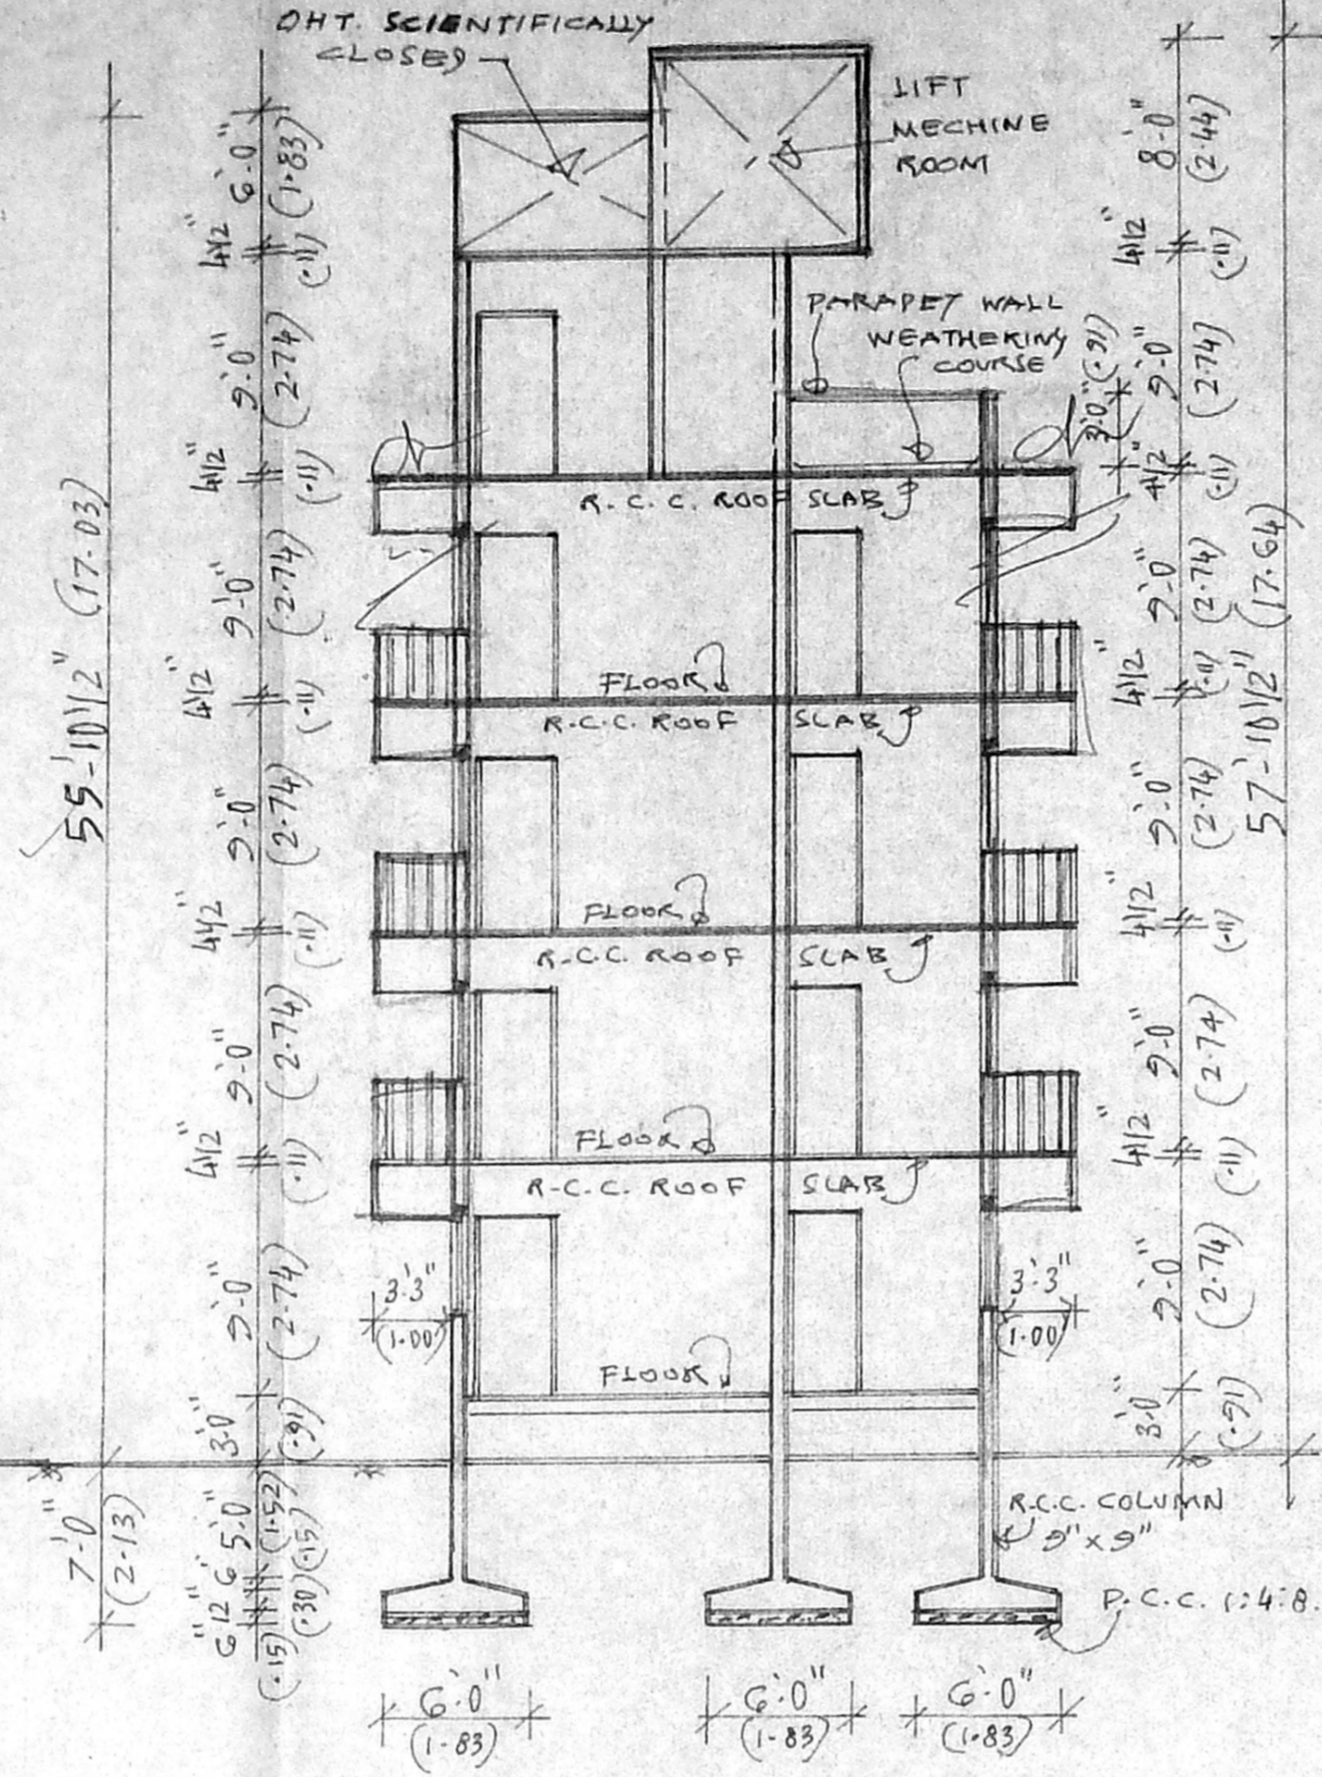 OHT. SCIENTIFICALLY
CLOSED
LIFT
MECHINE
ROOM
PARAPET WALL
WEATHERING
COURSE
R.C.C. ROOF SLAB
FLOOR
R.C.C. ROOF SLAB
FLOOR
R.C.C. ROOF SLAB
FLOOR
R.C.C. ROOF SLAB
FLOOR
55'-10 1/2" (17.03)
7'-0"
(2.13)
6'-0" (1.83)
4 1/2" (.11)
9'-0" (2.74)
4 1/2" (.11)
9'-0" (2.74)
4 1/2" (.11)
9'-0" (2.74)
4 1/2" (.11)
9'-0" (2.74)
4 1/2" (.11)
9'-0" (2.74)
3'0" (.91)
5'0" (1.52)
6" (.15)
12" (.30)
6" (.15)
3'3"
(1.00)
3'3"
(1.00)
8'-0" (2.44)
4 1/2" (.11)
9'-0" (2.74)
3'0" (.91)
4 1/2" (.11)
9'-0" (2.74)
4 1/2" (.11)
9'-0" (2.74)
4 1/2" (.11)
9'-0" (2.74)
4 1/2" (.11)
9'-0" (2.74)
3'0" (.91)
57'-10 1/2" (17.64)
R.C.C. COLUMN
9" x 9"
P.C.C. 1:4:8.
6'0"
(1.83)
6'0"
(1.83)
6'0"
(1.83)